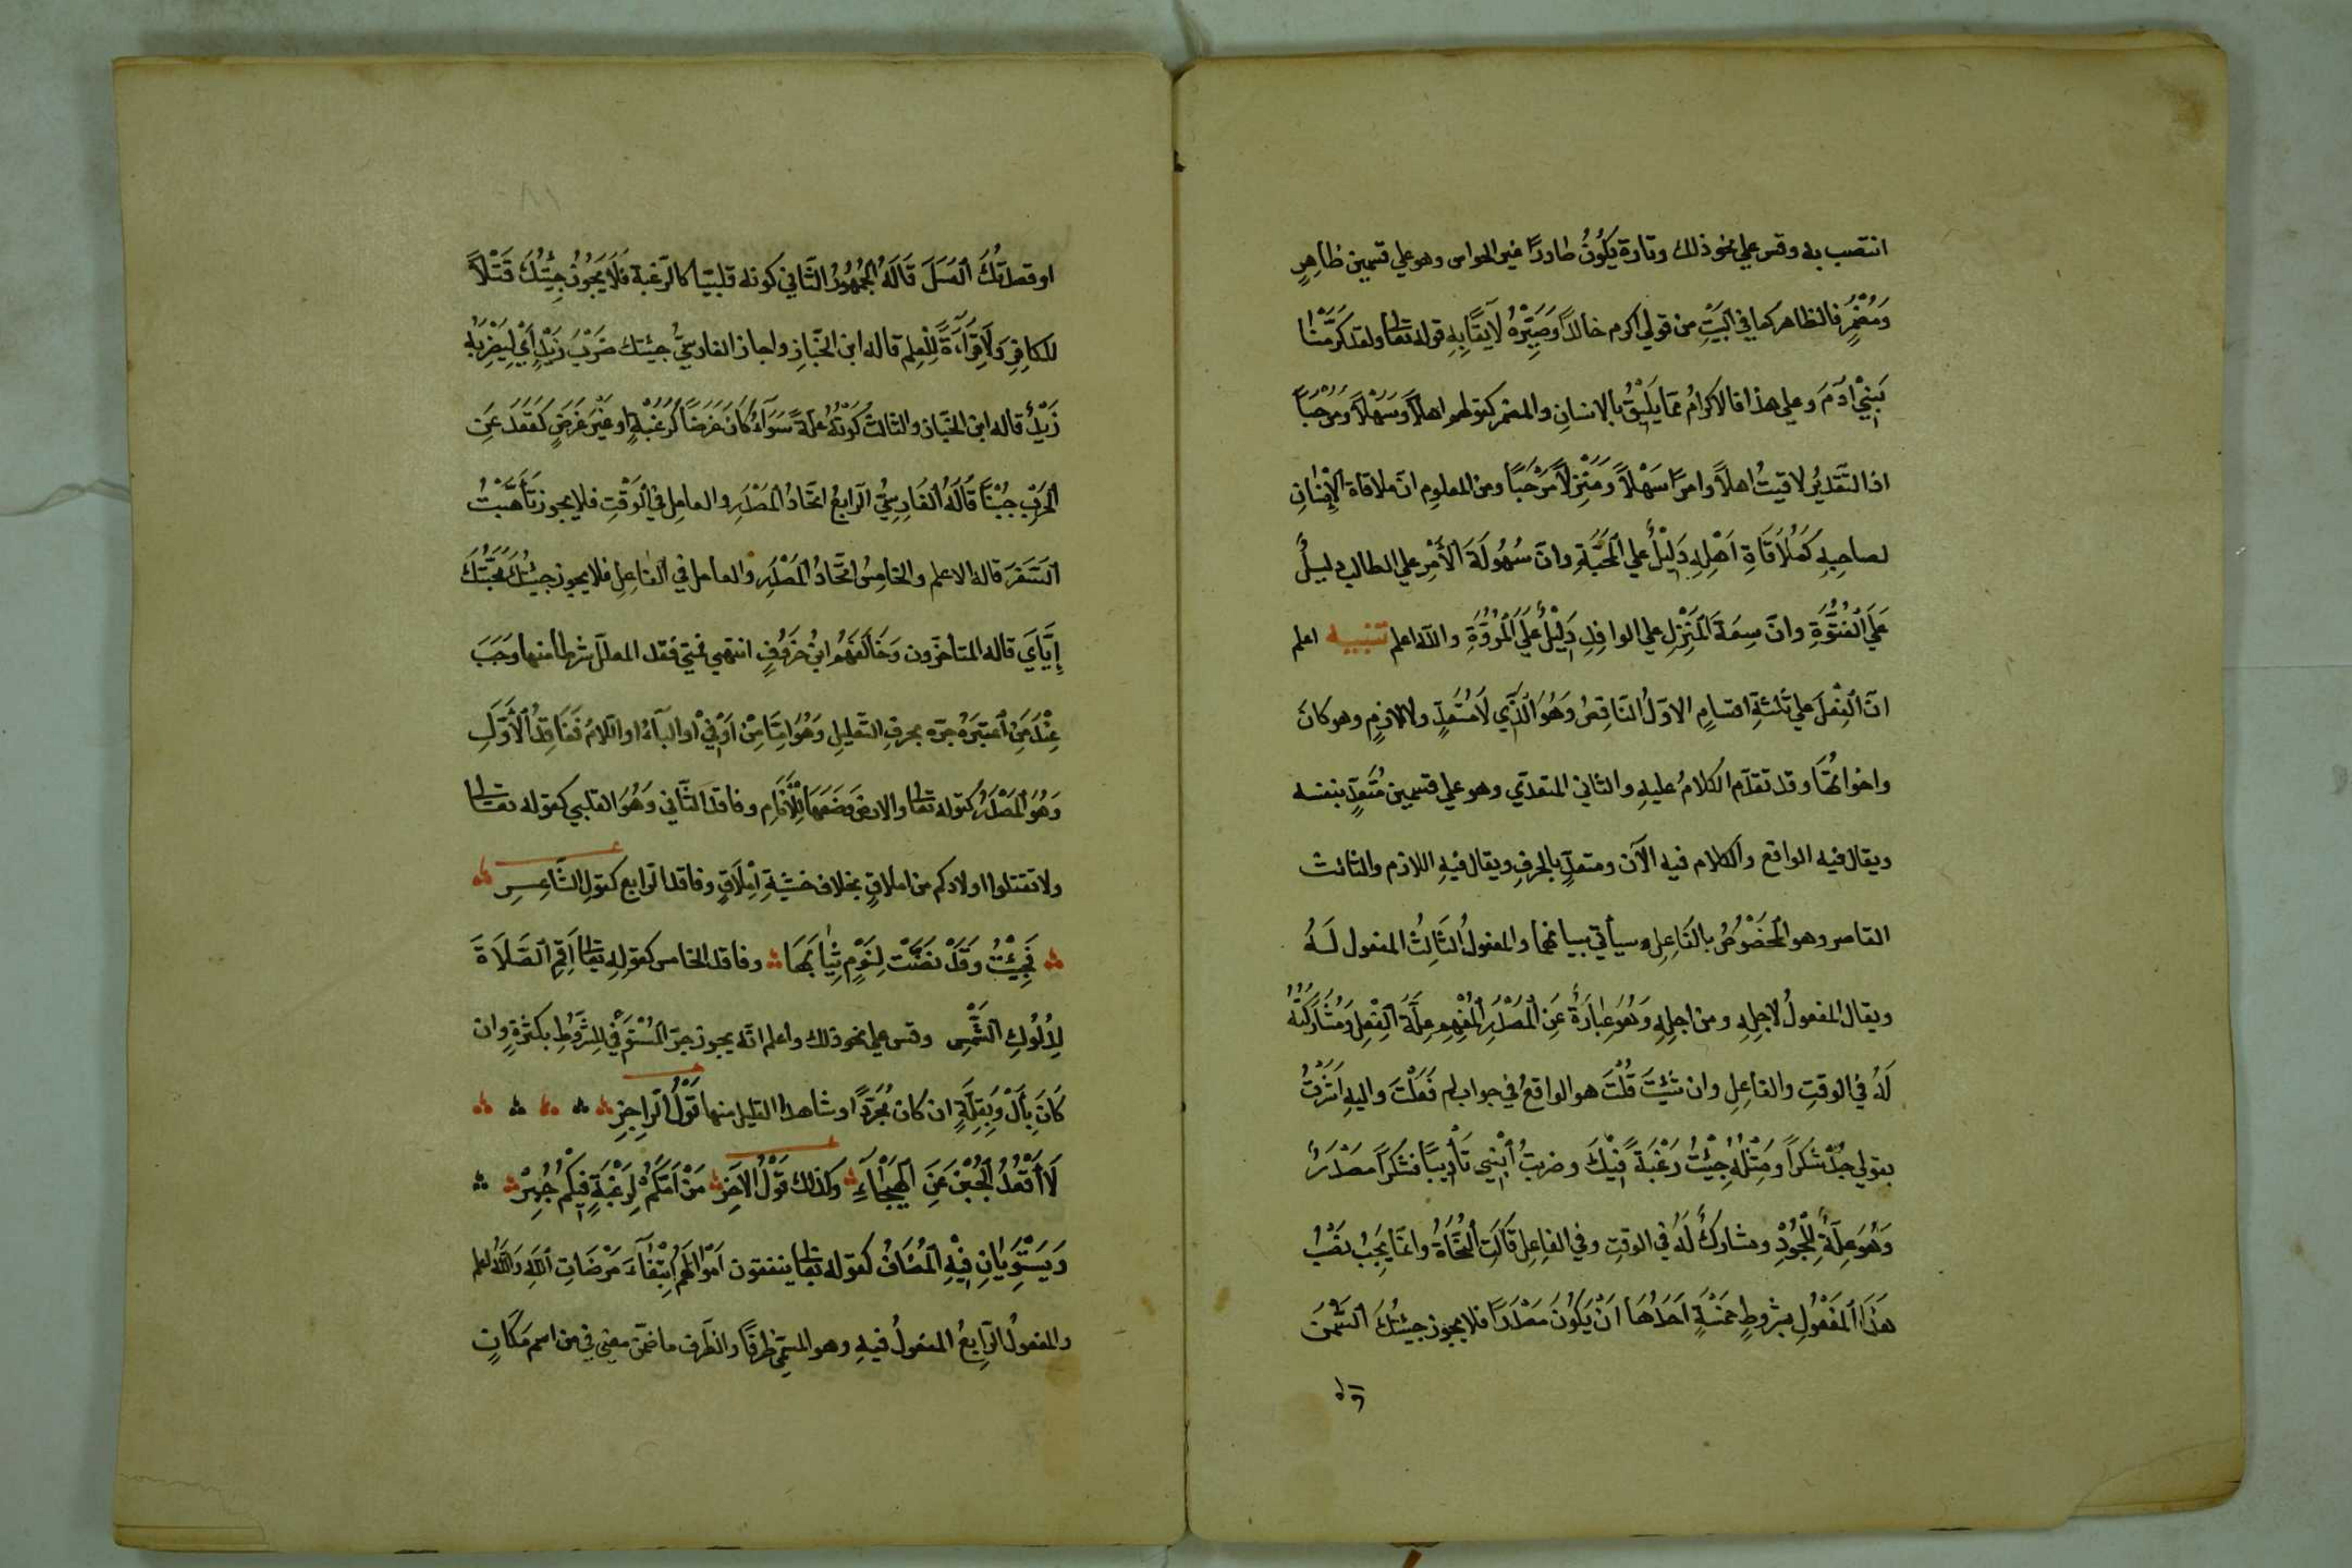 انتصب به وقس علي نحو ذلك وتارة يَكُونُ طاردًا غير الحواس وهو علي قسمين ظاهِرٍ
وَمُضْمَرٍ فالظاهر كما في البَيْتِ من قولي اكرم خالدًا وَصَيِّرْهُ لَايقًا بِهِ قوله تعالى ولقد كَرَّمْنَا
بَنِيْ ادَمَ وعلي هذا فالاكرامُ ممّا يَلِيْقُ بالانسانِ والمضمر كقولهم اهلاً وَسَهْلاً وَمَرْحَبًا
اذ التَّقدِيْرُ لاقيتُ اهلاً وامرًا سَهْلاً وَمَنْزِلاً مَرْحَبًا ومن المعلوم انّ ملاقاة الإِنْسَانِ
لصاحبِهِ كَمُلَاقَاةِ اَهْلِهِ دَلِيْلٌ علي المَحَبَّةِ وانّ سُهُولَةَ الأَمْرِ علي الطالب دليلٌ
عَلَى الفُتُوَّةِ وانّ سِعَةَ المَنْزِلِ علي الوافِدِ دَلِيْلٌ عَلَى المُرُوَّةِ والله اعلم تنبيه اعلم
انّ الفِعْلَ علي ثَلثةِ اقسامٍ الاوّلُ النّاقِصُ وَهُوَ الَّذِي لَا مُتَعَدٍّ ولا لازمٍ وهو كانَ
واخواتُهَا وقد تقدّم الكلامُ عليهِ والثاني المتعدّي وهو علي قسمين مُتَعَدٍّ بنفسه
ويقال فيه الواقع والكلام فيه الآن ومتعدٍّ بالحرفِ ويقال فيهِ اللازم والثالث
القاصر وهو المَخْصُوصُ بالفَاعِلِ وسيأتي بيانهما والمفعولُ الثَالِثُ المفعول لَهُ
ويقال المفعولُ لاجلِهِ ومن اجلِهِ وَهُوَ عِبَارَةٌ عَنِ المَصْدَرِ المُفْهِمِ عِلَّةَ الفِعْلِ وَمُشَارَكَتَهُ
لَهُ في الوقتِ والفاعِلِ وان شِئْتَ قُلْتَ هو الواقعُ في جواب لم فَعَلْتَ واليهِ اَشَرْتُ
بقولي جُدْ شُكراً وَمِثْلُهُ جِئْتُ رَغْبَةً فِيْكَ وضربتُ ابْنِي تَأْدِيبًا فشكراً مصْدَرٌ
وَهُوَ عِلَّةٌ لِلْجُوْدِ ومشاركٌ لَهُ في الوقتِ وفي الفاعِلِ قَالَتِ النُّحَاةُ وانّمَا يَجِبُ نصْبُ
هَذَا المَفْعُولِ بشروطٍ خمْسَةٍ اَحَدُهَا اَنْ يَكُوْنَ مصْدَرًا فلا يجوز جئتُكَ السَّمْنَ
او قصدتُكَ العَسَلَ قَالَهُ الجُمْهُورُ الثَّاني كونه قلبيّا كالرّغبة فَلَا يَجُوزُ جِئْتُكَ قَتْلاً
للكافِرِ وَلَا قِرَاءَةً لِلْعِلمِ قاله ابن الخبّازِ واجاز الفارسيُّ جيئتك ضَرْبَ زَيْدٍ اَيْ لِيَضْرِبَهُ
زَيْدٌ قاله ابن الخبّاز والثالث كَوْنُهُ علةً سَوَاءٌ كَانَ غَرَضًا كَرَغْبَةٍ او غَيْرَ غَرَضٍ كَقَعَدَ عَنِ
الحَرْبِ جُبْنًا قَالَهُ الفَارِسِيُّ الرّابعُ اتحّادُ المَصْدَرِ والعامل في الوَقْتِ فلا يجوز تَأَهَّبْتُ
السَّفَرَ قاله الاعلم والخامسُ اتحّادُ المَصْدَرِ والعامل في الفاعِلِ فلا يجوز جيئتُكَ مَحَبَّتَكَ
إِيَّايَ قاله المتاخّرون وَخَالَفَهُم ابنُ خَرُوفٍ انتهي فمتي فقد المعلّل شرطا منها وَجَبَ
عِنْدَ مَنِ اعْتَبَرَهُ جرّه بحرفِ التّعليلِ وَهُوَ امّا مِنْ اَوْ فِيْ او الباءُ او اللّامُ فَفَاقِدُ الأَوَّلِ
وَهُوَ المَصْدَرُ كقوله تعالى والارض وَضَعَهَا لِلْأَنَامِ وفاقدُ الثَّاني وَهُوَ القلبي كقوله تعالى
ولا تقتلوا اولادكم من املاقٍ بخلاف خشيةِ اِمْلَاقٍ وفاقد الرابع كقولِ الشّاعِرِ
فَجِيْئتُ وَقَدْ نضَّتْ لِنَوْمٍ ثِيَابَهَا وفاقد الخامس كقولِهِ تعالى اَقِمِ الصَّلَاةَ
لِدُلُوكِ الشَّمْسِ وقس علي نحو ذلك واعلم انّه يجوز جرّ المُسْتَوْفِي للشُّروطِ بكثرةٍ وان
كَانَ بِأَلْ وَبِقِلَّةٍ ان كان مُجَرَّدًا وشاهدُ القليل منها قَوْلُ الرّاجِزِ
لَا أَقْعُدُ الجُبْنَ عَنِ الهَيْجَاءِ وكذلك قَوْلُ الاخِر مَنْ اَمَّكُمْ لِرَغْبَةٍ فِيْكُمْ جُبِرْ
وَيَسْتَوِيَانِ فِيْهِ المُضَافُ كقوله تعالى ينفقون اَمْوَالَهُمُ ابْتِغَآءَ مَرْضَاتِ اللهِ وَاللهُ اعلم
والمفعولُ الرّابعُ المفعولُ فيهِ وهو المسمّي ظرفًا والظّرف ما ضمّن معني في من اسم مَكَانٍ